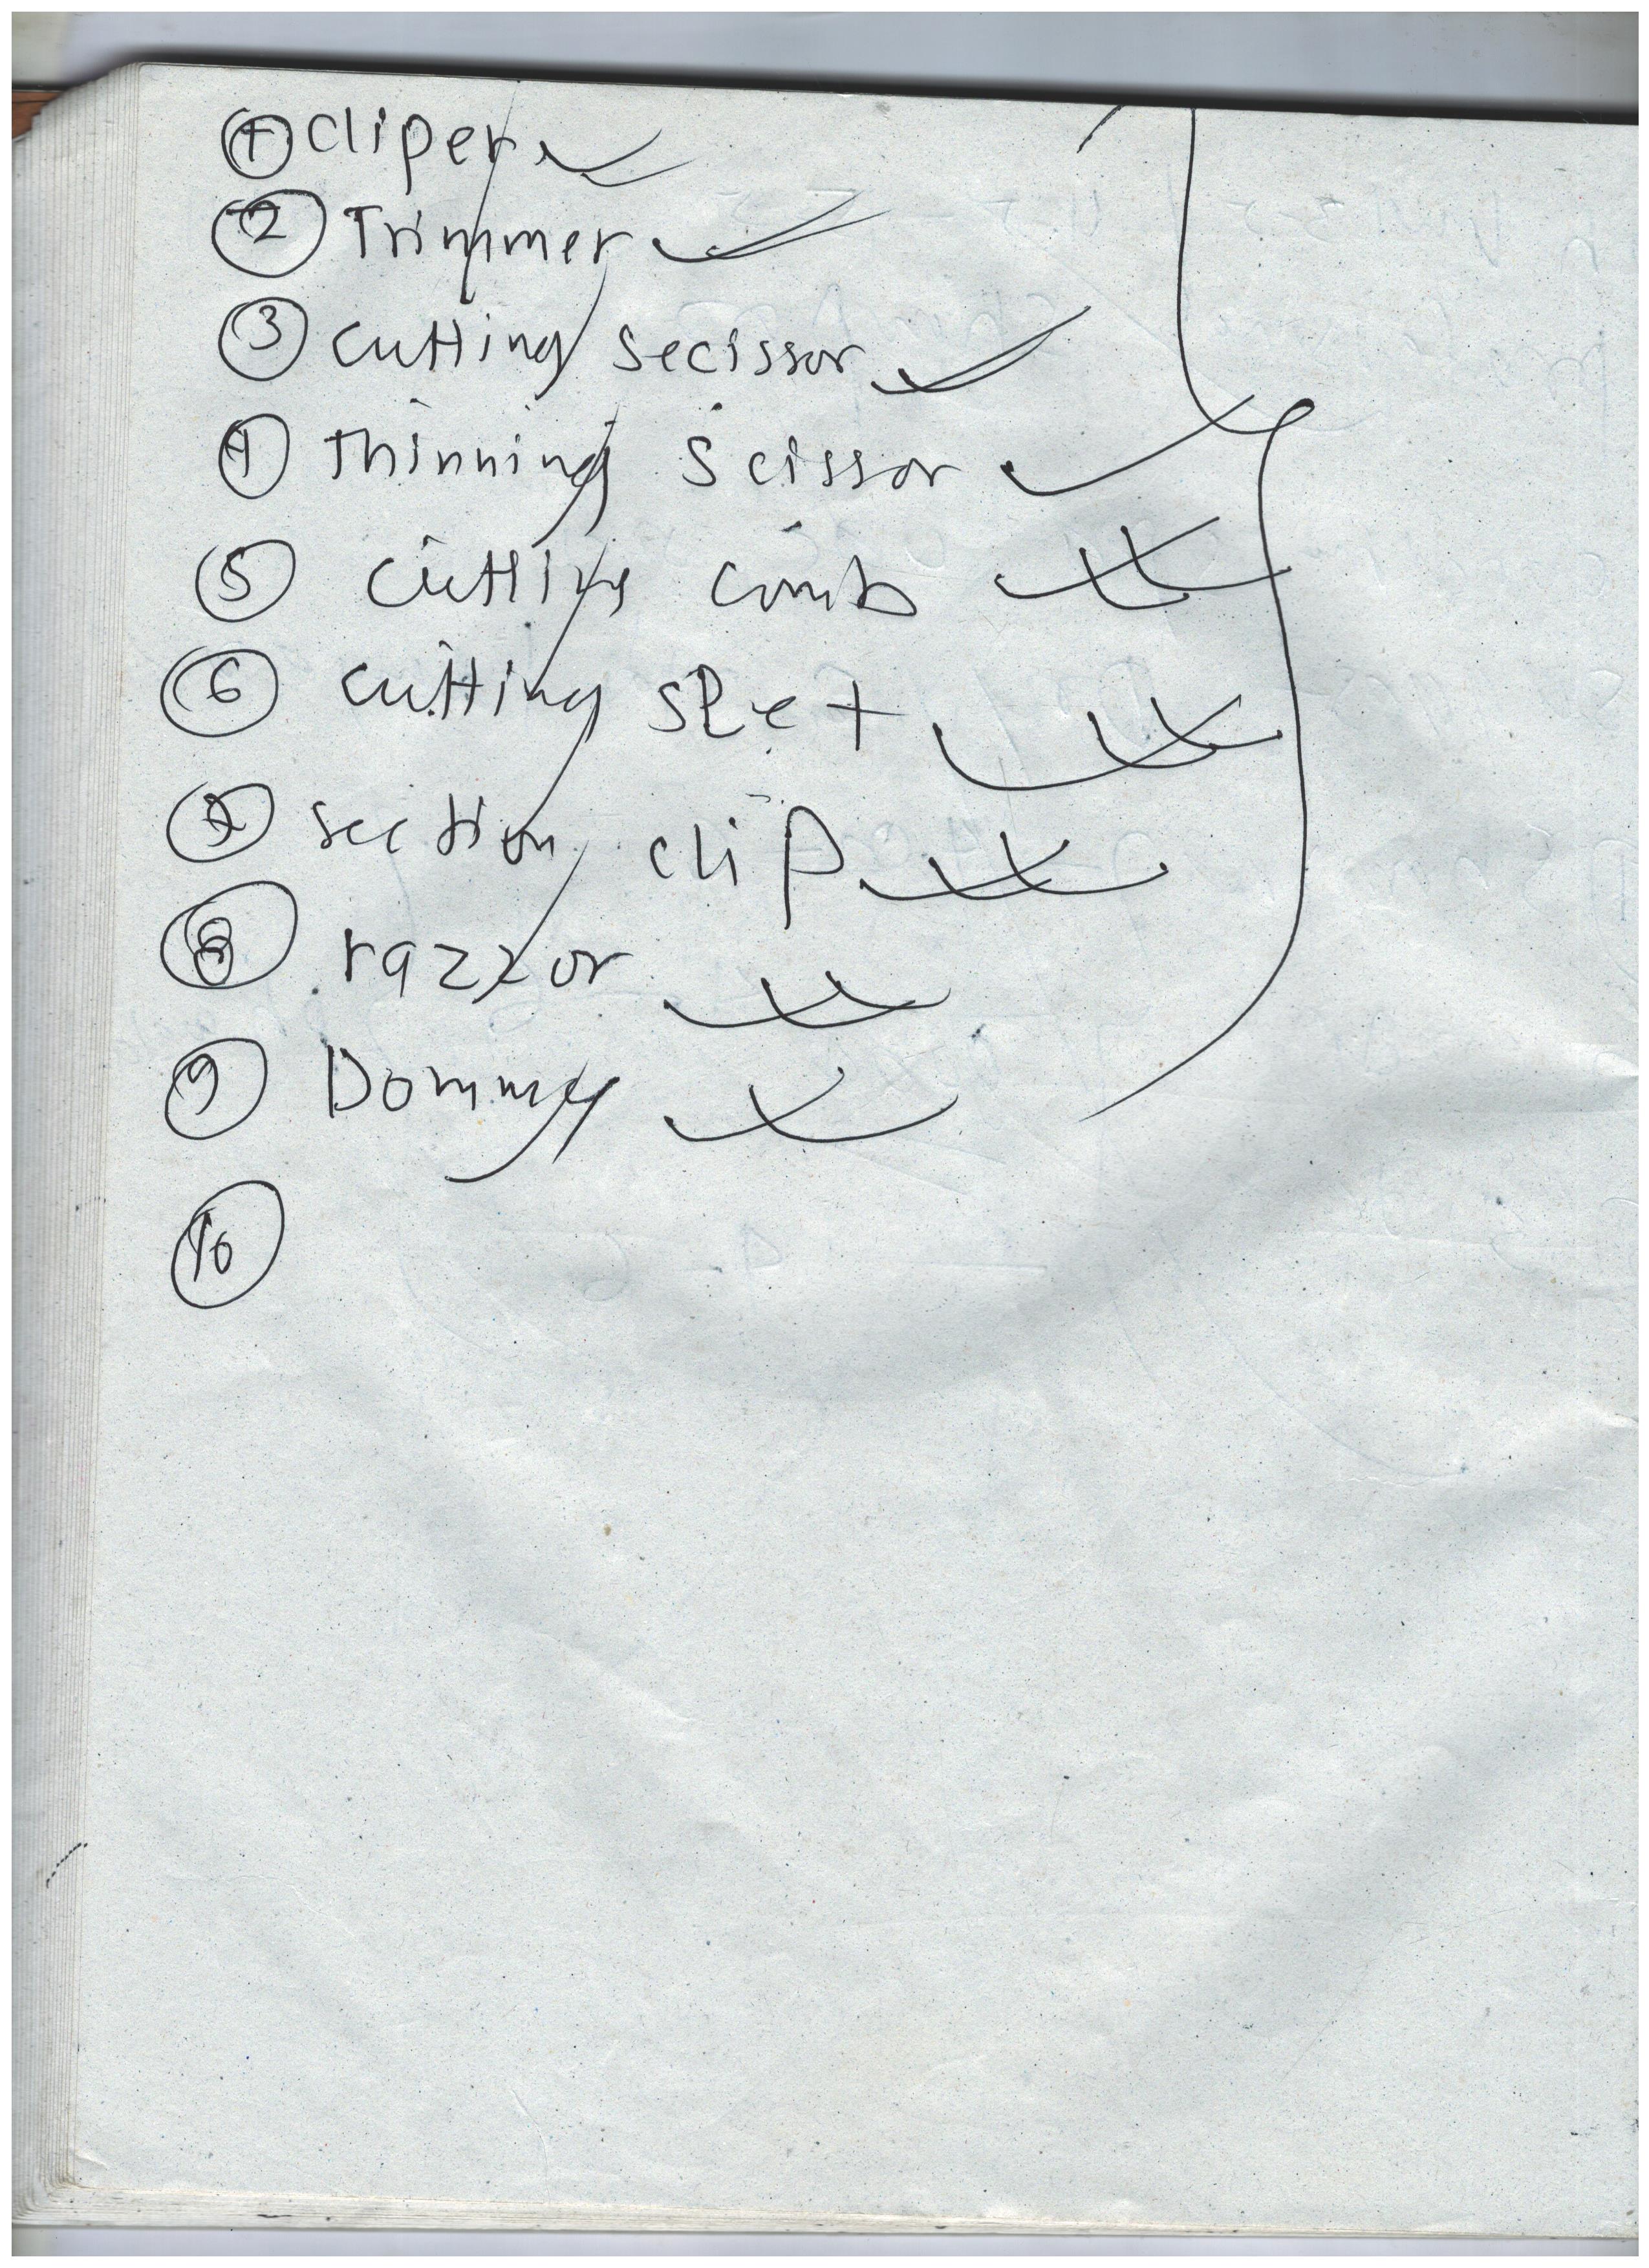 ① Cliper
② Trimmer
③ cutting secissor
④ thinning scissor
⑤ cutting comb
⑥ cutting sheet
⑦ section clip
⑧ razzor
⑨ Dommy
⑩